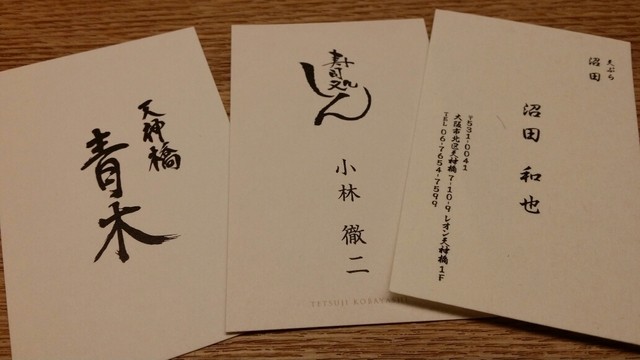 天神橋
青木
寿司処
しん
小林 徹二
TETSUJI KOBAYASHI
天ぷら
沼田
沼田 和也
〒531-0041
大阪市北区天神橋7-10-9 レオン天神橋1F
TEL 06-7654-7599